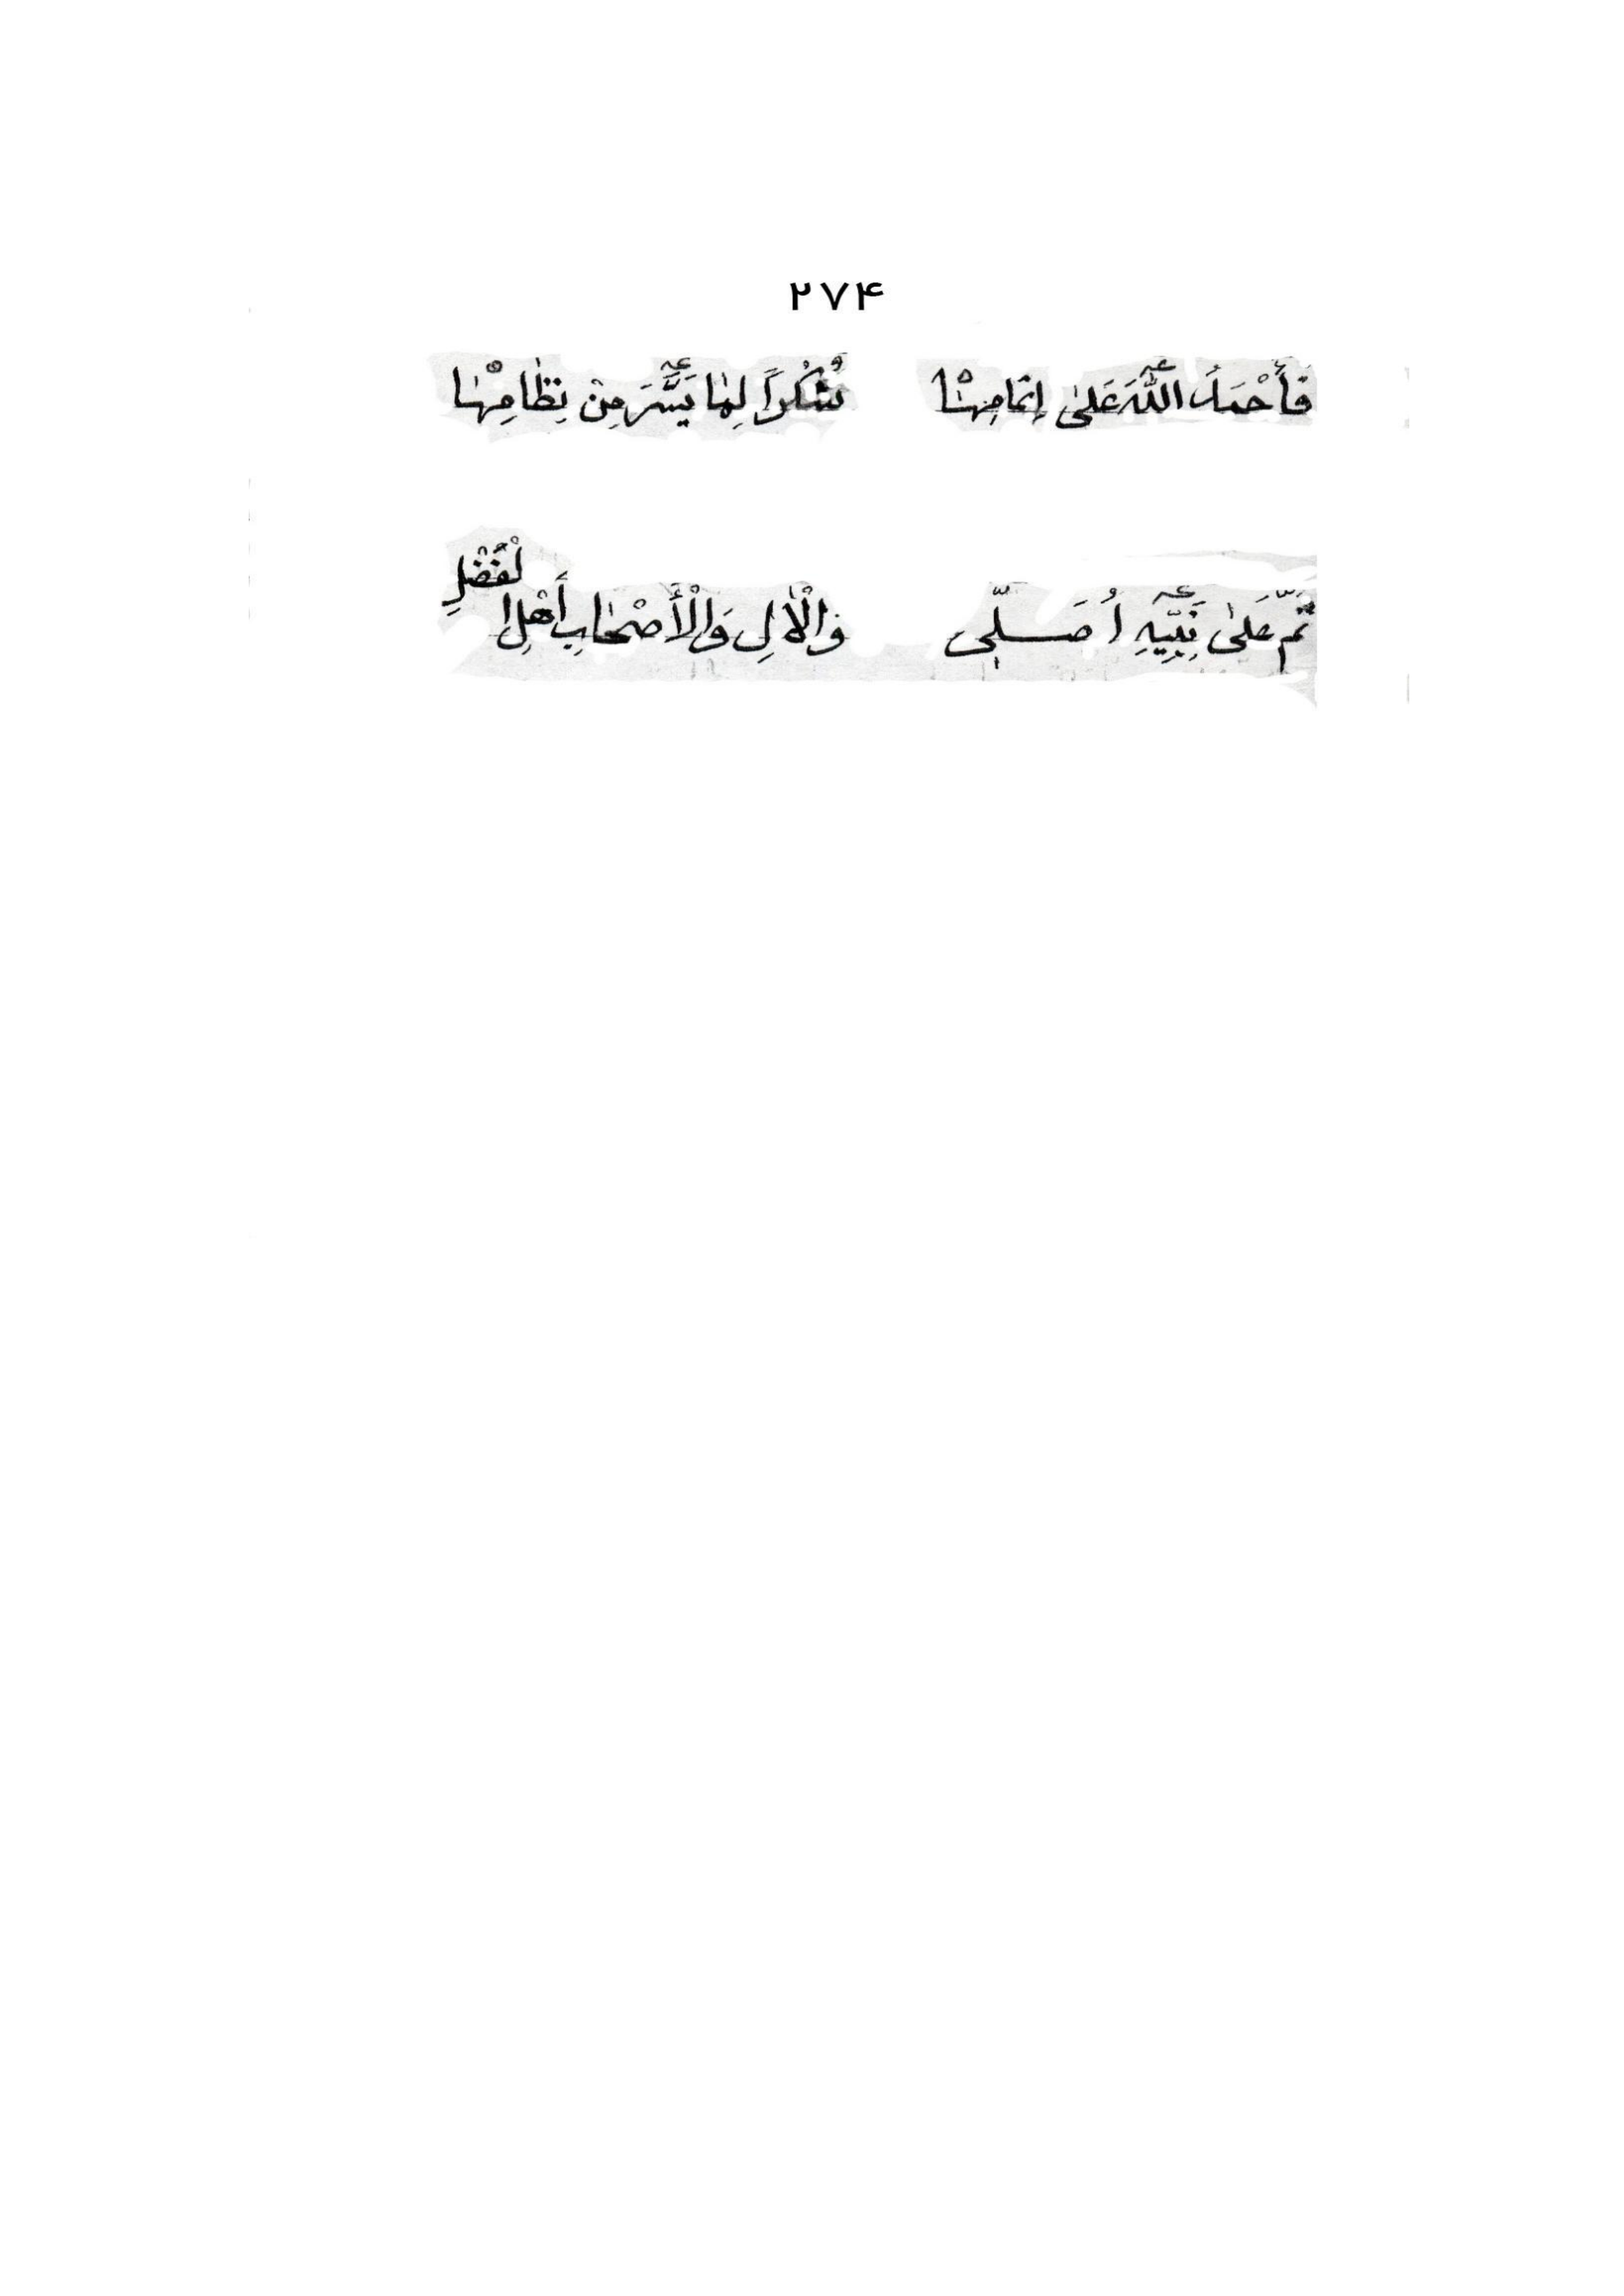 ۲۷۴
فَأَحْمَدُ اللّٰهَ عَلىٰ اِتمٰامِهٰا شُكْراً لِمٰا يَسَّرَ مِنْ نِظٰامِهٰا
ثُمَّ عَلىٰ نَبِيِّهِ اُصَلّى وَالْاٰلِ وَالْأَصْحٰابِ أَهْلِ الْفَضْلِ